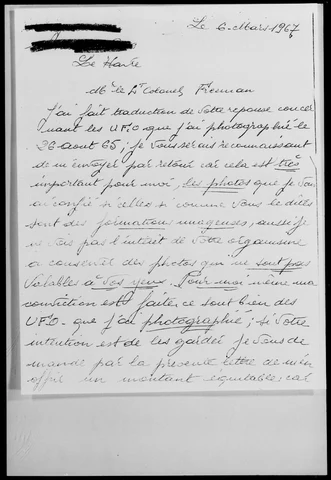 Le 6 Mars 1967
Le Havre
Mr le Lt Colonel Freeman
J'ai fait traduction de Votre reponse concer
nant les UFO que j'ai photographié le
26 Aout 65; je Vous serais reconnaissant
de m'envoyer par retour car cela est très
important pour moi, les photos que je Vous
ai confié si elles si comme Vous le dites
sont des formations nuageuses, aussi je
ne Vois pas l'intérêt de Votre organisme
a conserver des photos qui ne sont pas
Valables à Vos yeux. Pour moi même ma
conviction est faite, ce sont bien des
UFO que j'ai photographié; si Votre
intention est de les garder je Vous de
mande par la présente lettre de m'en
offrir un montant équitable; car